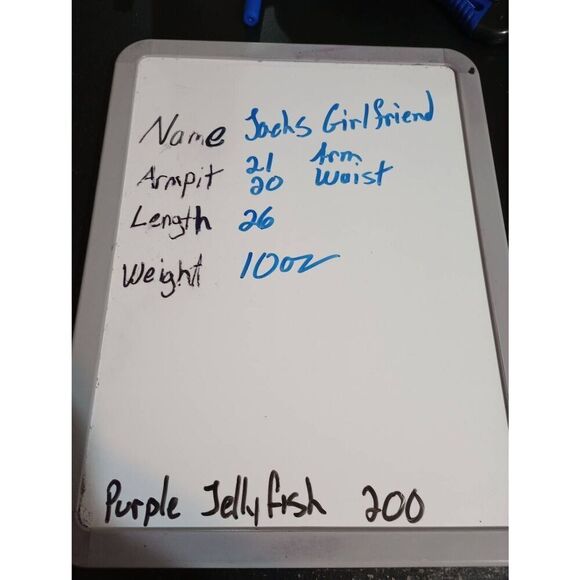 Name Jacks Girlfriend
Armpit 21 Arm
20 Waist
Length 26
Weight 10oz
Purple Jellyfish 200